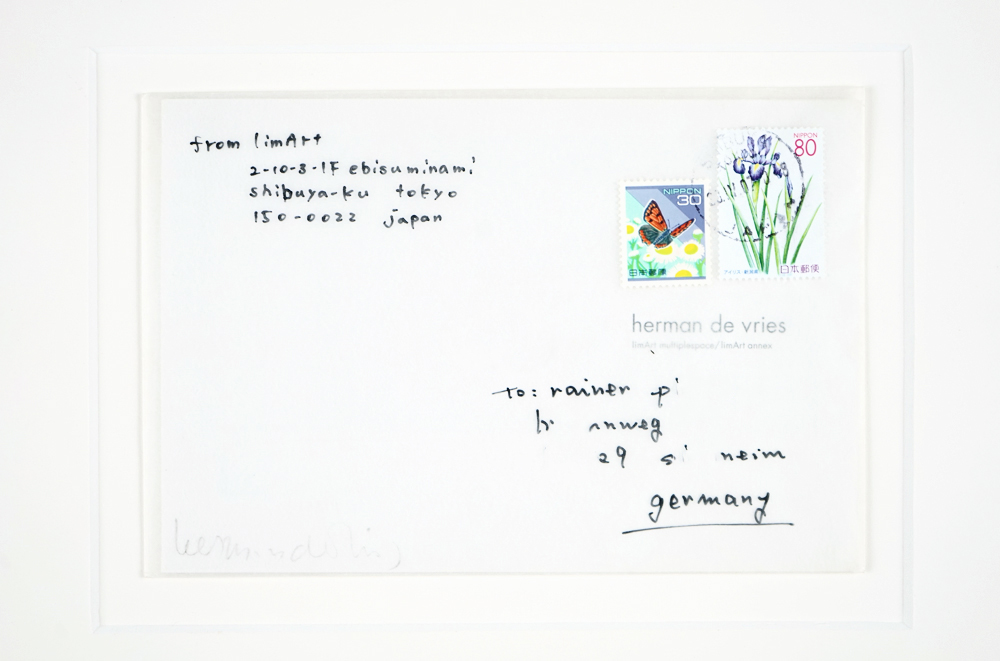 from limArt
2-10-3-1F ebisuminami
shibuya-ku tokyo
150-0022 japan
NIPPON
80
NIPPON
30
日本郵便
アイリス 新潟県
日本郵便
herman de vries
limArt multiplespace/limArt annex
to: rainer
29
germany